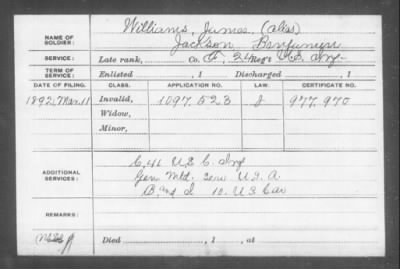 Williams, James, (alias)
NAME OF SOLDIER: Jackson, Benjamin
SERVICE: Late rank, Co. F, 24 Reg't U.S. Inf.
TERM OF SERVICE: Enlisted , 1 Discharged , 1
DATE OF FILING. CLASS. APPLICATION NO. LAW. CERTIFICATE NO.
1892, Mar. 11 Invalid, 1097.523 J 977.970
Widow,
Minor,
ADDITIONAL SERVICES: C, 41 U.S.C. Inf.
Gen Mtd. Serv U.S.A.
B and I 10. U.S. Cav
REMARKS:
Died , 1 , at